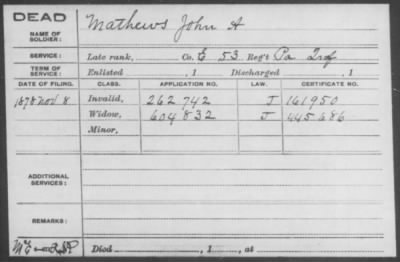 DEAD
NAME OF SOLDIER: Mathews John A
SERVICE: Late rank, Co. E 53 Reg't Pa Inf
TERM OF SERVICE: Enlisted , 1 Discharged , 1
DATE OF FILING. CLASS. APPLICATION NO. LAW. CERTIFICATE NO.
1878 Nov 8. Invalid, 262,742 J 161950
Widow, 604,832 J 445686
Minor,
ADDITIONAL SERVICES:
REMARKS:
Died , 1 , at